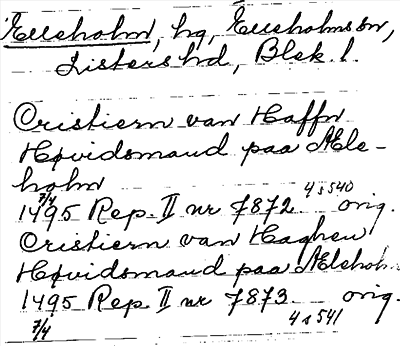 Elleholm, hg, Elleholms sn,
Listers hd, Blek. l.
Cristiern van Haffn
Høvidsmand paa Æle-
holm
7/4 4 s 540
1495 Rep. II nr 7872 orig.
Cristiern van Haghen
Høvidsmand paa Æleholm
1495 Rep. II nr 7873 orig.
7/4 4 s 541